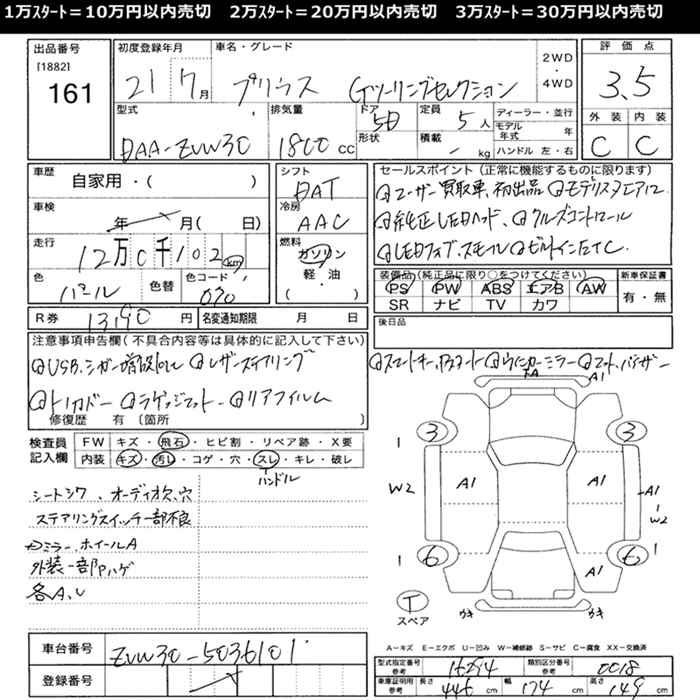 1万ｽﾀｰﾄ＝10万円以内売切 2万ｽﾀｰﾄ＝20万円以内売切 3万ｽﾀｰﾄ＝30万円以内売切
出品番号 初度登録年月 車名・グレード 評価点
[1882]
161 21 7月 プリウス Gツーリングセレクション 2WD・4WD 3.5
型式 排気量 ドア 定員 ディーラー・並行 外装 内装
DAA-ZVW30 1800cc 5D 5人 モデル年式 年 C C
形状 積載 kg ハンドル 左・右
車歴 自家用・( ) シフト DAT セールスポイント(正常に機能するものに限ります)
車検 年 月( 日) 冷房 AAC ユーザー買取車、初出品 モデリスタエアロ
走行 12万0千102km 燃料 ガソリン 純正LEDヘッド、クルーズコントロール
軽・油 LEDフォグ、スモール ビルトインETC
色 パール 色替 色コード 070 ( )
装備品(純正品に限り○をつけてください) 新車保証書
PS PW ABS エアB AW 有・無
SR ナビ TV カワ
R券 13,190円 名変通知期限 月 日 後日品
注意事項申告欄(不具合内容等は具体的に記入して下さい)
USB、シガー増設 レザーステアリング スマートキー、Pスタート ウインカーミラー マット、バイザー
トノカバー ラゲッジマット リアフィルム
修復歴 有 〔箇所 〕
検査員記入欄 FW キズ・飛石・ヒビ割・リペア跡・X要
内装 キズ・汚レ・コゲ・穴・スレ・キレ・破レ
ハンドル
シートシワ、オーディオ次、穴
ステアリングスイッチ一部不良
ミラー、ホイールA
外装一部Pハゲ
各A、U
A1
1 3 3 1
W2 A1 A1 A1
W2
1 6 6 1
A1
T
スペア
A−キズ E−エクボ U−凹み W−補修跡 S−サビ C−腐食 XX−交換済
車台番号 ZVW30-5036101
登録番号
型式指定番号参考 16294 類別区分番号参考 0018
車庫証明用参考 長さ 446cm 幅 174cm 高さ 149cm